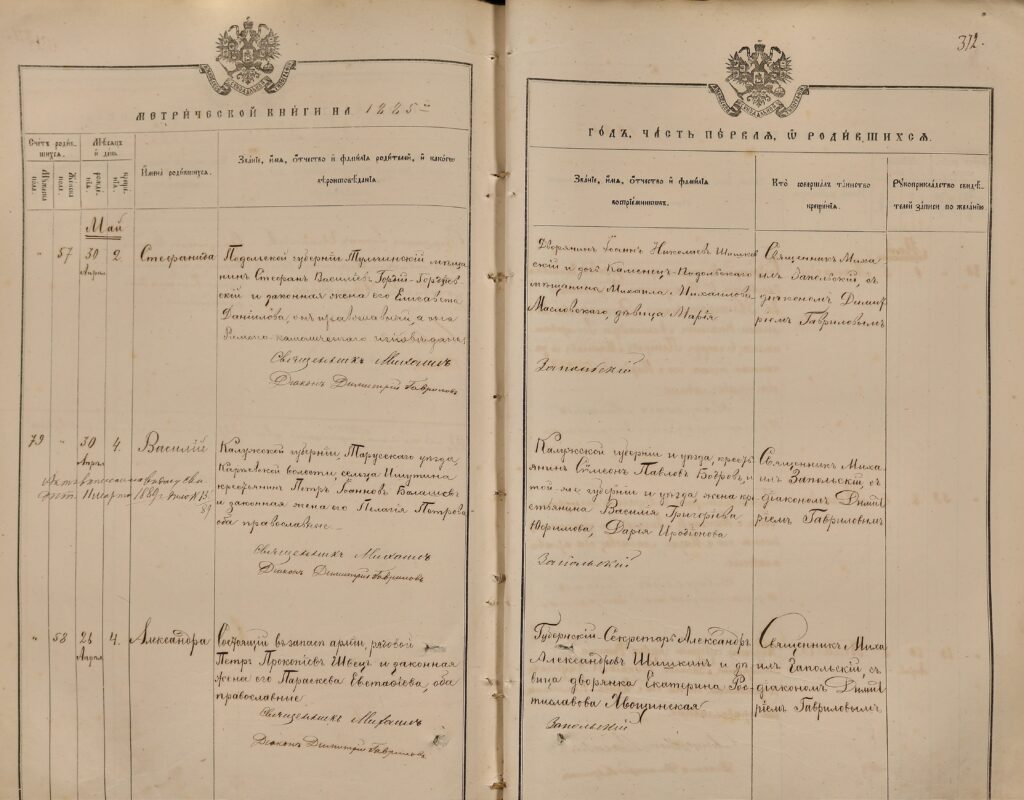 312.
МЕТРИ́ЧЕСКОЙ КНИ́ГИ НА 1885й
ГО́ДЪ, ЧА́СТЬ ПЕ́РВАЯ, Ѡ РОДИ́ВШИХСЯ.
Счётъ роди́в-
шихся.
Мужеска
пола.
Женска
пола.
Мѣсяцъ
и день
рожде-
нія.
креще-
нія.
Имена роди́вшихся.
Зва́ніе, и́мя, о́тчество и фами́лія роди́телей, и како́го
вѣроисповѣ́данія.
Зва́ніе, и́мя, о́тчество и фами́лія
воспріе́мниковъ.
Кто̀ соверша́лъ та́инство
креще́нія.
Рукоприкла́дство свидѣ́-
телей за́писи по жела́нію
Май
" 57 30 2.
Апрѣл
Стефанида
Подольской губерніи Тульчинскій мѣща
нинъ Стефанъ Василіевъ
скій и законная жена его Елисавета
Данилова, онъ православный, а она
Римско-католическаго исповѣданія
Священникъ Михаилъ
Діаконъ Димитрій Гавриловъ
Дворянинъ Іоаннъ Николаевъ
скій и дочь Каменецъ-Подольскаго
мѣщанина Михаила Михаилова
Масловскаго, дѣвица Марія
Запольскій
Священникъ Миха
илъ Запольскій, съ
діакономъ Димит
ріемъ Гавриловымъ
79 " 30 4.
Апрѣл
Василій
Калужской губерніи, Тарусскаго уѣзда,
волости, сельца
крестьянинъ Петръ Іоанновъ
и законная жена его Пелагія Петрова
оба православные
Священникъ Михаилъ
Діаконъ Димитрій Гавриловъ
Калужской губерніи и уѣзда, кресть
янинъ Сѵмеонъ Павловъ Бобровъ, и
той-же губерніи и уѣзда, жена кре
стьянина Василія Григорiева
Юфимова, Дарія Иродіонова
Запольскій
Священникъ Миха
илъ Запольскій, съ
діакономъ Димит
ріемъ Гавриловымъ
" 58 4.
Апрѣл
Александра
Состоящій въ запасѣ арміи, рядовой
Петръ Прокопіевъ Швецъ и законная
жена его Параскева Евстафіева, оба
православные
Священникъ Михаилъ
Діаконъ Димитрій Гавриловъ
Губернскій-Секретарь Александръ
Александровъ Шишкинъ и дѣ
вица дворянка Екатерина Рос
тиславова
Запольскій
Священникъ Миха
илъ Запольскій, съ
діакономъ Димит
ріемъ Гавриловымъ